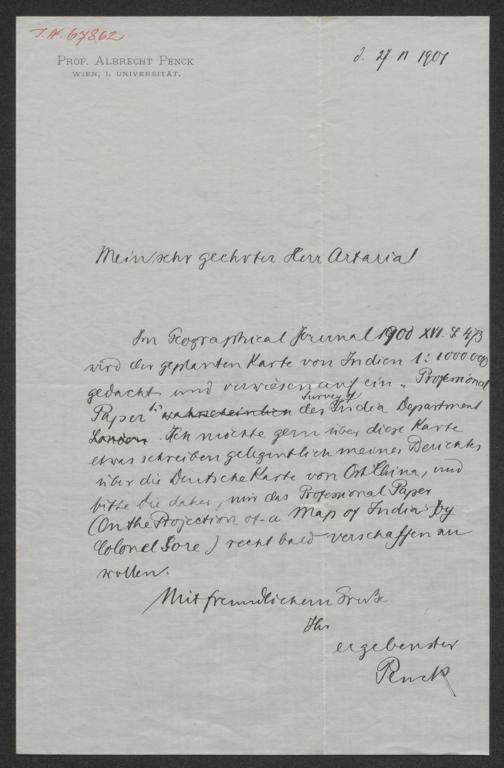 J.N. 67862
PROF. ALBRECHT PENCK
WIEN, I. UNIVERSITÄT.
d. 27 II 1901
Mein sehr geehrter Herr Artaria!
Im Geographical Journal 1900 XVI. S. 473
wird der geplanten Karte von Indien 1:1000000
gedacht und verwiesen auf ein „Professional
Paper" wahrscheinlich des Survey of India Department
London. Ich möchte gern über diese Karte
etwas schreiben gelegentlich meines Berichtes
über die Deutsche Karte von Ost China, und
bitte Sie daher, mir das Professional Paper
(On the Projection of a Map of India by
Colonel Gore) recht bald verschaffen zu
wollen.
Mit freundlichem Gruße
Ihr
ergebenster
Penck